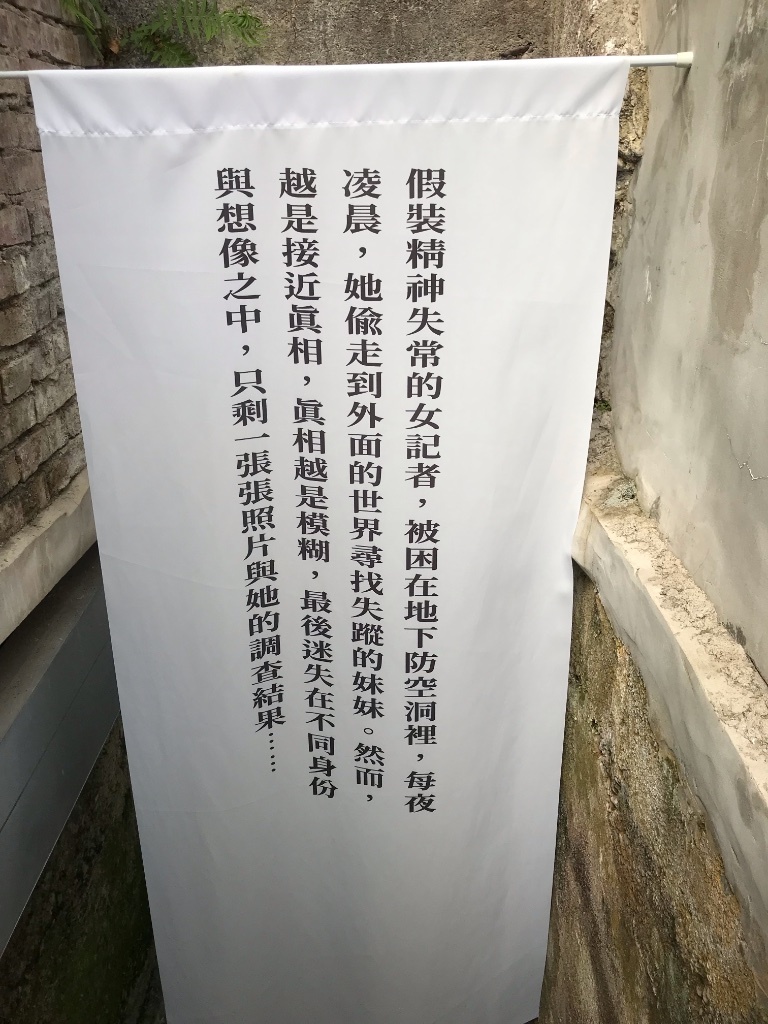 假裝精神失常的女記者，被困在地下防空洞裡，每夜
凌晨，她偸走到外面的世界尋找失蹤的妹妹。然而，
越是接近眞相，眞相越是模糊，最後迷失在不同身份
與想像之中，只剩一張張照片與她的調查結果……